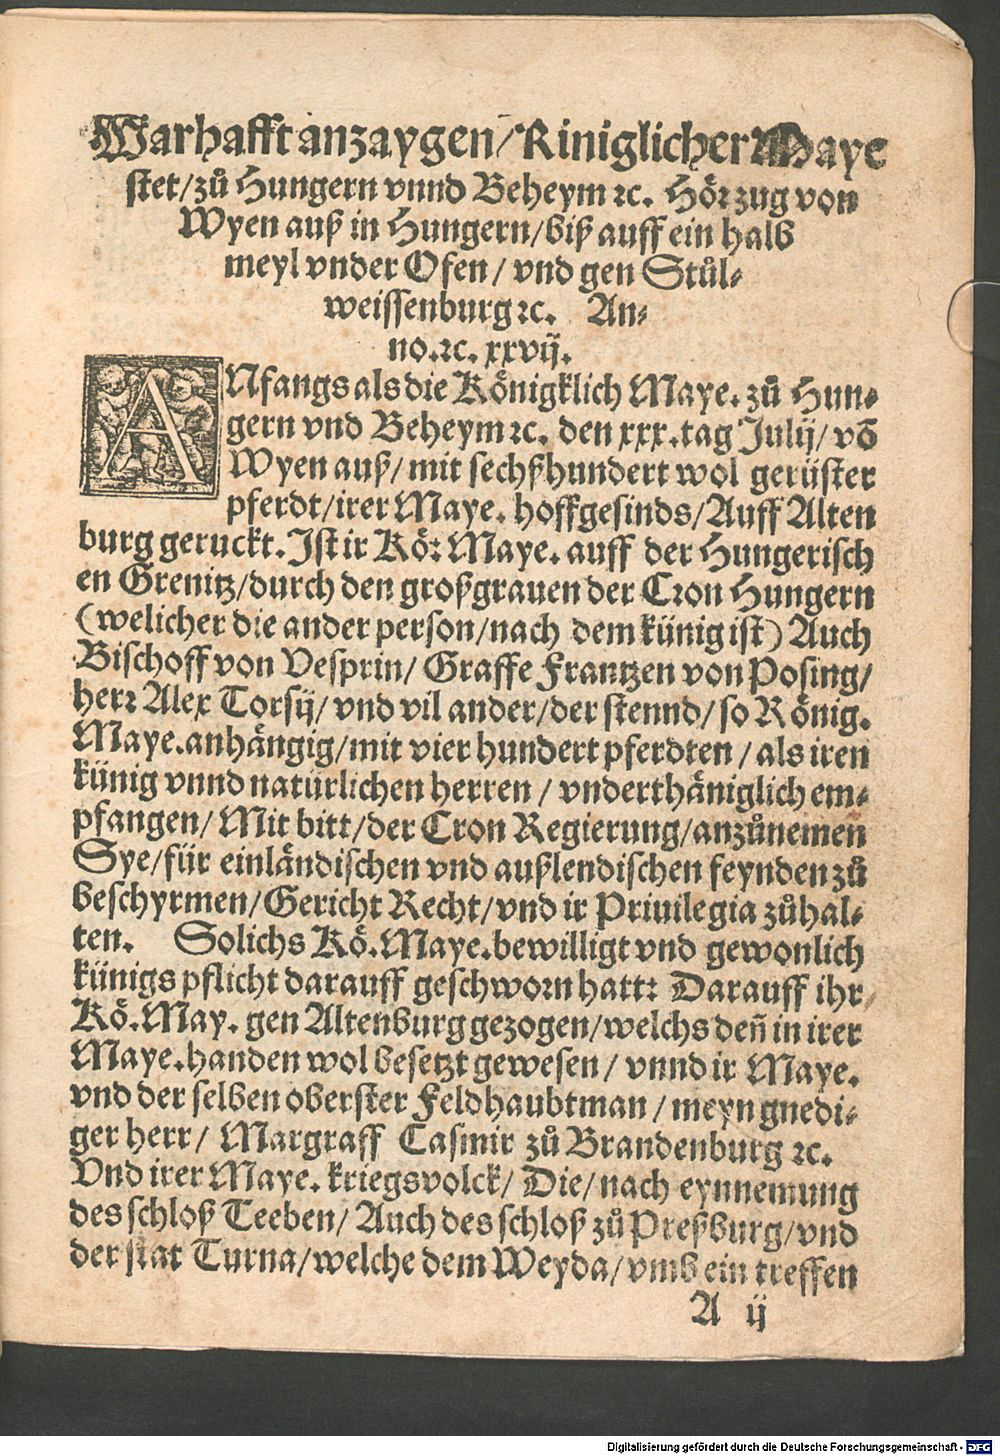 Warhafft anzaygen / Kiniglicher Maye
stet / zuͦ Hungern vnnd Beheym ꝛc. Hoͤrzug von
Wyen auß in Hungern / biß auff ein halb
meyl vnder Ofen / vnd gen Stuͦl⸗
weissenburg ꝛc. An⸗
no. ꝛc. xxvij.
ANfangs als die Koͤnigklich Maye. zuͦ Hun⸗
gern vnd Beheym ꝛc. den xxx. tag Julij / võ
Wyen auß / mit sechßhundert wol geruͤster
pferdt / irer Maye. hoffgesinds / Auff Alten
burg geruckt. Ist ir Koͤ: Maye. auff der Hungerisch
en Grenitz / durch den großgrauen der Cron Hungern
(welicher die ander person / nach dem kuͤnig ist) Auch
Bischoff von Vesprin / Graffe Frantzen von Posing /
herr Alex Torsij / vnd vil ander / der stennd / so Koͤnig.
Maye. anhaͤngig / mit vier hundert pferdten / als iren
kuͤnig vnnd natuͤrlichen herren / vnderthaͤniglich em⸗
pfangen / Mit bitt / der Cron Regierung / anzuͦnemen
Sye / fuͤr einlaͤndischen vnd außlendischen feynden zuͦ
beschyrmen / Gericht Recht / vnd ir Priuilegia zuͦhal⸗
ten. Solichs Koͤ. Maye. bewilligt vnd gewonlich
kuͤnigs pflicht darauff geschworn hatt: Darauff ihr
Koͤ. May. gen Altenburg gezogen / welchs deñ in irer
Maye. handen wol besetzt gewesen / vnnd ir Maye.
vnd der selben oberster Feldhaubtman / meyn gnedi⸗
ger herr / Margraff Casmir zuͦ Brandenburg ꝛc.
Vnd irer Maye. kriegsvolck / Die / nach eynnemung
des schloß Teeben / Auch des schloß zuͦ Preßburg / vnd
der stat Turna / welche dem Weyda / vmb ein treffen
A ij
Digitalisierung gefördert durch die Deutsche Forschungsgemeinschaft - DFG